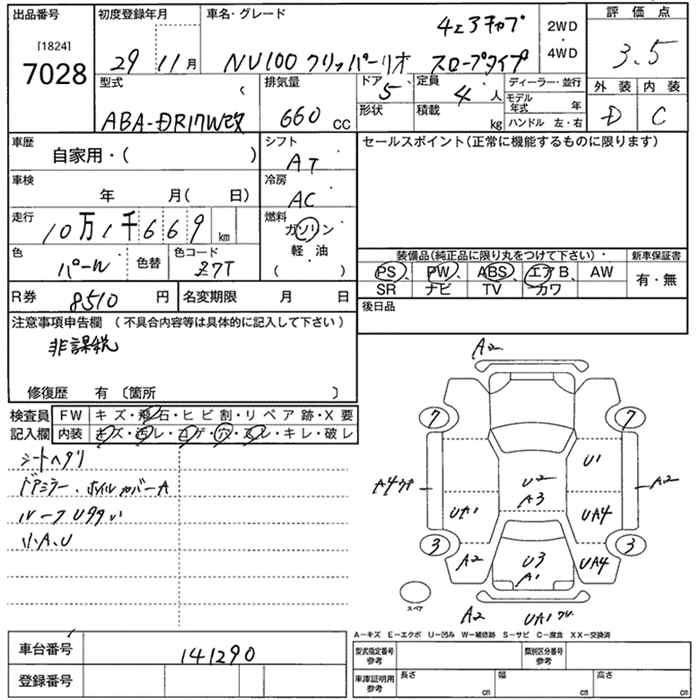 出品番号
[1824]
7028
初度登録年月
29 11月
車名・グレード
NV100 クリッパーリオ スロープタイプ
2WD
・
4WD
評価点
3.5
外装 内装
D C
型式
ABA-DR17W改
排気量
660 cc
ドア 5
定員 4 人
形状
積載 kg
ディーラー・並行
モデル年式 年
ハンドル 左・右
車歴
自家用・( )
シフト
AT
セールスポイント(正常に機能するものに限ります)
車検
年 月( 日)
冷房
AC
走行
10万1千669 km
燃料
ガソリン
軽・油
( )
色
パール
色替
色コード
Z7T
装備品(純正品に限り丸をつけて下さい)・
新車保証書
PS PW ABS エアB AW
SR ナビ TV カワ
有・無
R券 8510 円
名変期限 月 日
後日品
注意事項申告欄 (不具合内容等は具体的に記入して下さい)
非課税
修復歴 有 〔箇所 〕
検査員
記入欄
FW キズ・飛石・ヒビ割・リペア跡・X要
内装 キズ・汚レ・コゲ・穴・スレ・キレ・破レ
シートヘタリ
ドアミラー、ホイルカバーA
小A、U
A2
7 7
U1
U2
A3
A2
UA1 UA4
3 3
A2 U3 UA4
A1
スペア
A2 UA1
A-キズ E-エクボ U-凹み W-補修跡 S-サビ C-腐食 XX-交換済
車台番号
141290
登録番号
型式指定番号
参考
類別区分番号
参考
車庫証明用
参考
長さ cm
幅 cm
高さ cm